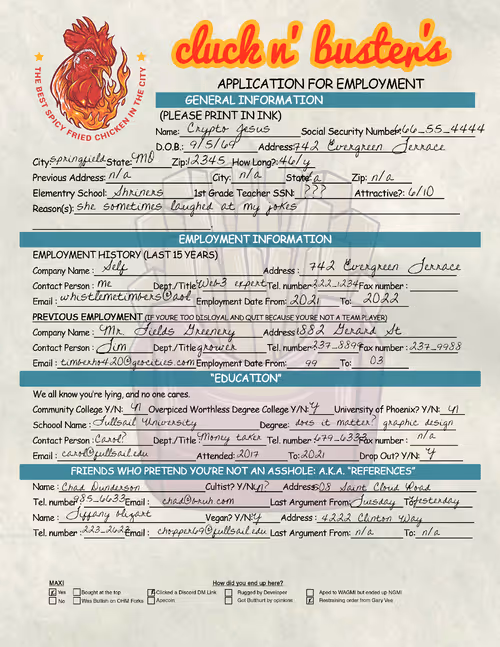 cluck n' buster's
THE BEST SPICY FRIED CHICKEN IN THE CITY
APPLICATION FOR EMPLOYMENT
GENERAL INFORMATION
(PLEASE PRINT IN INK)
Name: Crypto Jesus Social Security Number: 666_55_4444
D.O.B.: 9/5/69 Address: 742 Evergreen Terrace
City: springfield State: MO Zip: 12345 How Long?: 46/y
Previous Address: n/a City: n/a State: n/a Zip: n/a
Elementry School: Shriners 1st Grade Teacher SSN: ??? Attractive?: 6/10
Reason(s): she sometimes laughed at my jokes
EMPLOYMENT INFORMATION
EMPLOYMENT HISTORY (LAST 15 YEARS)
Company Name: Self Address: 742 Evergreen Terrace
Contact Person: me Dept./Title: Web3 expert Tel. number: 222_1234 Fax number:
Email: whistlemetimbers@aol Employment Date From: 2021 To: 2022
PREVIOUS EMPLOYMENT (IF YOU'RE TOO DISLOYAL AND QUIT BECAUSE YOU'RE NOT A TEAM PLAYER)
Company Name: Mr. Fields Greenery Address: 1882 Gerard St
Contact Person: Jim Dept./Title: grower Tel. number: 237_8899 Fax number: 237_9988
Email: timberho420@geocities.com Employment Date From: 99 To: 03
"EDUCATION"
We all know you're lying, and no one cares.
Community College Y/N: y/ Overpiced Worthless Degree College Y/N: Y University of Phoenix? Y/N: y/
Schoool Name: Fullsail University Degree: does it matter? graphic design
Contact Person: Carol? Dept./Title: Money taker Tel. number: 479_6333 Fax number: n/a
Email: carol@fullsail.edu Attended: 2017 To: 2021 Drop Out? Y/N: Y
FRIENDS WHO PRETEND YOU'RE NOT AN ASSHOLE: A.K.A. "REFERENCES"
Name: Chad Dunderson Cultist? Y/N: y? Address: 508 Saint Cloud Road
Tel. number: 985_6633 Email: chad@bruh.com Last Argument From: Tuesday To: Yesterday
Name: Tiffany Mozart Vegan? Y/N: Y Address: 4222 Clinton Way
Tel. number: 223_2623 Email: chopper69@fullsail.edu Last Argument From: n/a To: n/a
MAXI How did you end up here?
Yes Bought at the top Clicked a Discord DM Link Rugged by Developer Aped to WAGMI but ended up NGMI
No Was Bullish on OHM Forks Apecoin Got Butthurt by opinions Restraining order from Gary Vee